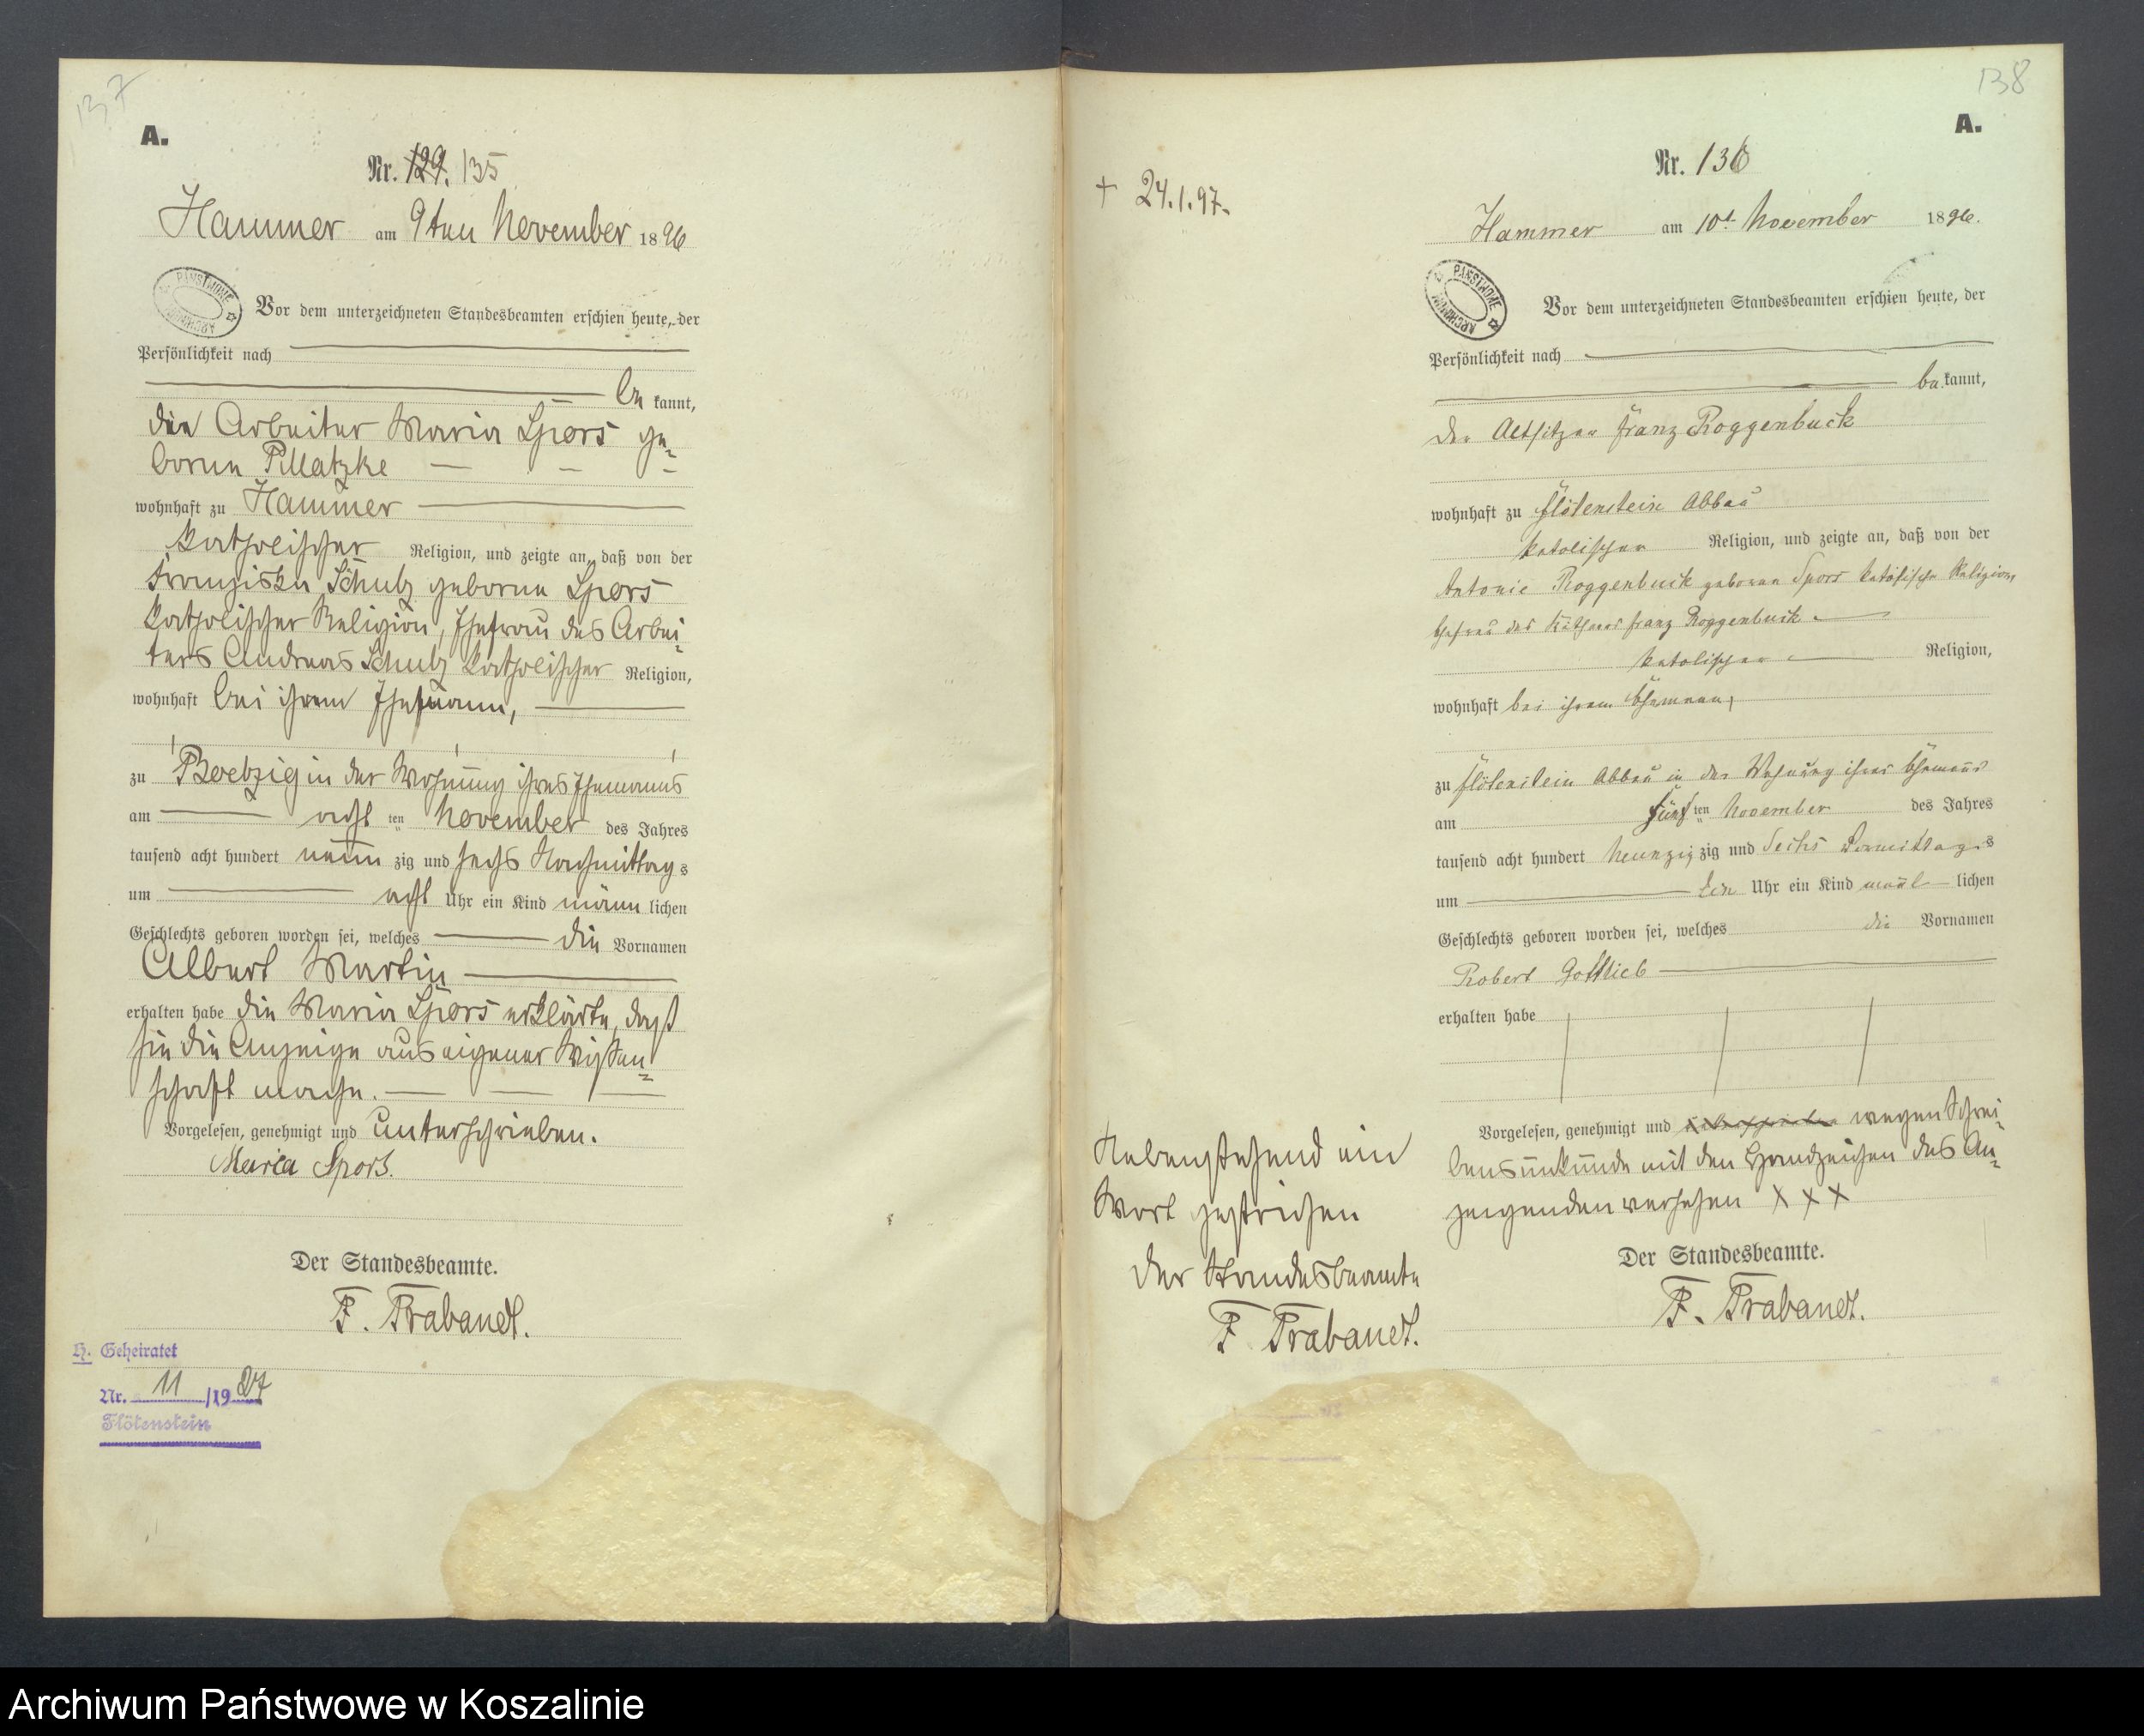 137
A.
Nr. 129. 135
Hammer am 9ten November 1896
PAŃSTWOWE ARCHIWUM
Vor dem unterzeichneten Standesbeamten erschien heute, der
Persönlichkeit nach
be kannt,
die Arbeiter Maria Spors ge=
borene Pillatzke
wohnhaft zu Hammer
katholischer Religion, und zeigte an, daß von der
Franziska Schulz geborene Spors
katholischer Religion, Ehefrau des Arbei=
ters Andreas Schulz katholischer Religion,
wohnhaft bei ihrem Ehemann,
zu in der Wohnung ihres Ehemanns
am acht ten November des Jahres
tausend acht hundert neun zig und sechs Nachmittag s
um acht Uhr ein Kind männ lichen
Geschlechts geboren worden sei, welches die Vornamen
Albert Martin
erhalten habe die Maria Spors erklärte, daß
sie die Anzeige aus eigener Wissen=
schaft mache.
Vorgelesen, genehmigt und unterschrieben.
Maria Spors.
Der Standesbeamte.
F. Trabandt.
H. Geheiratet
Nr. 11 /1927
Flötenstein
138
A.
Nr. 136
+ 24.1.97.
Hammer am 10t November 1896.
PAŃSTWOWE ARCHIWUM
Vor dem unterzeichneten Standesbeamten erschien heute, der
Persönlichkeit nach
be kannt,
der Altsitzer Franz Roggenbuck
wohnhaft zu Flötenstein Abbau
katolischer Religion, und zeigte an, daß von der
Antonie Roggenbuck geborene Spors katolische Religion,
Ehefrau des Käthners Franz Roggenbuck
katolischer Religion,
wohnhaft bei ihrem Ehemann,
zu Flötenstein Abbau in der Wohnung ihres Ehemans
am fünf ten November des Jahres
tausend acht hundert neunzig zig und Sechs Vormittag s
um Ein Uhr ein Kind mänl lichen
Geschlechts geboren worden sei, welches die Vornamen
Robert Gottlieb
erhalten habe
Vorgelesen, genehmigt und wegen Schrei=
bensunkunde mit den Handzeichen des An=
zeigenden versehen X X X
Nebenstehend ein
Wort gestrichen
Der Standesbeamte
F. Trabandt.
Der Standesbeamte.
F. Trabandt.
Archiwum Państwowe w Koszalinie